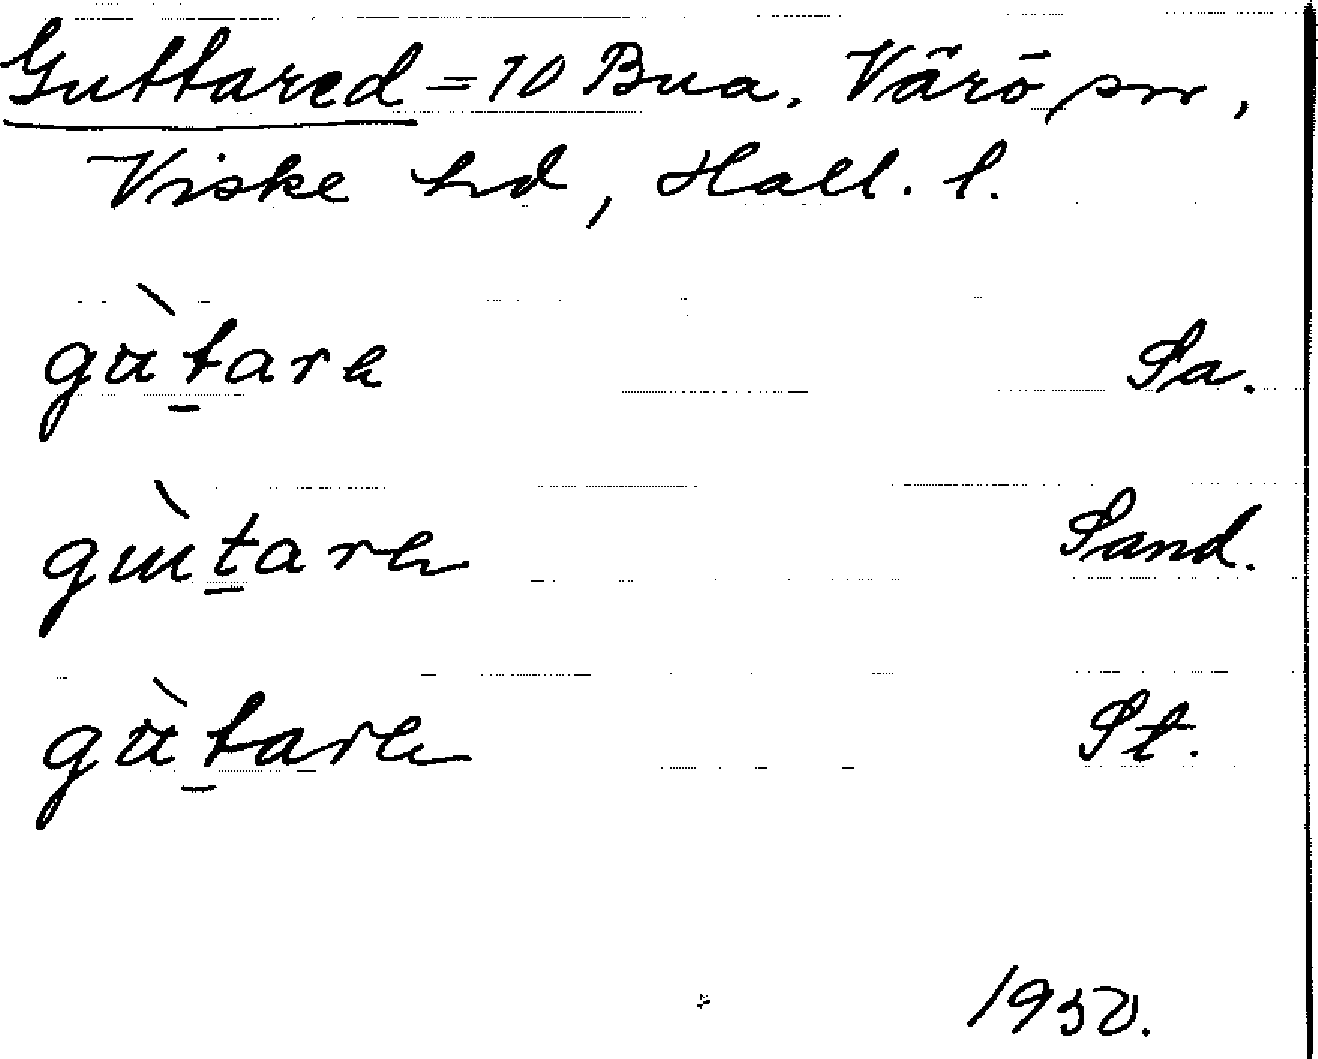 Guttared = 10 Bua. Värö sn,
Viske hd, Hall. l.
gùt̲are Sa.
gùt̲are Sand.
gùt̲are St.
1950.